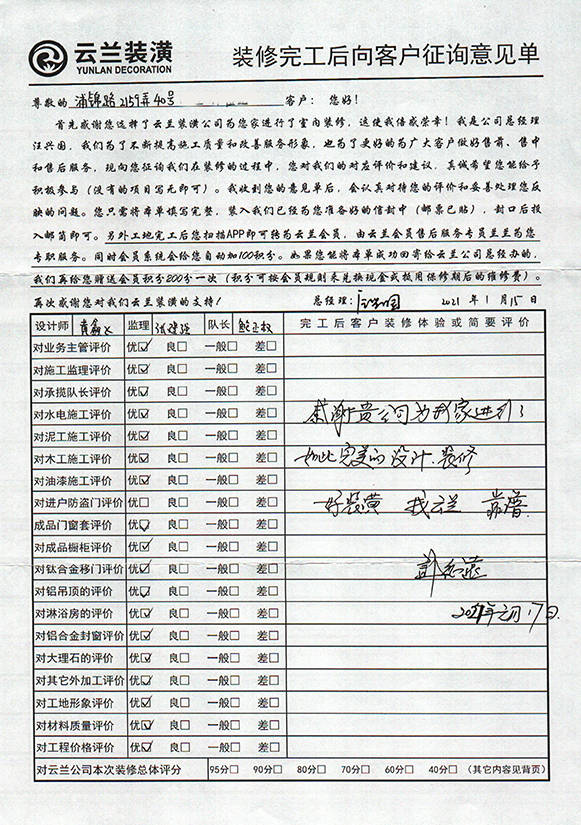 云兰装潢
YUNLAN DECORATION
装修完工后向客户征询意见单
尊敬的 浦锦路2159弄40号 客户：您好！
首先感谢您选择了云兰装潢公司为您家进行了室内装修，这使我倍感荣幸！我是公司总经理
汪兴国，我们为了不断提高施工质量和改善服务形象，也为了更好的为广大客户做好售前、售中
和售后服务，现向您征询我们在装修的过程中，您对我们的对应评价和建议，真诚希望您能给予
积极参与（没有的项目写无即可）。我收到您的意见单后，会认真对待您的评价和妥善处理您反
映的问题。您只需将本单填写完整，装入我们已经为您准备好的信封中（邮票已贴），封口后投
入邮筒即可。另外工地完工后您扫描APP即可转为云兰会员，由云兰会员售后服务专员兰兰为您
专职服务。同时会员系统会给您自动加100积分。如果您能将本单成功回寄给云兰公司总经办的，
我们再给您赠送会员积分200分一次（积分可按会员规则来兑换现金或抵用保修期后的维修费）。
再次感谢您对我们云兰装潢的支持！ 总经理： 2021年1月15日
设计师 监理 队长 完工后客户装修体验或简要评价
对业务主管评价 优☑ 良□ 一般□ 差□
对施工监理评价 优☑ 良□ 一般□ 差□
对承揽队长评价 优☑ 良□ 一般□ 差□
对水电施工评价 优☑ 良□ 一般□ 差□ 感谢贵公司为我家进行了
对泥工施工评价 优☑ 良□ 一般□ 差□
对木工施工评价 优☑ 良□ 一般□ 差□ 如此完美的设计、装修
对油漆施工评价 优☑ 良□ 一般□ 差□
对进户防盗门评价 优□ 良□ 一般□ 差□ 好装黄 找云兰 靠谱
成品门窗套评价 优☑ 良□ 一般□ 差□
对成品橱柜评价 优☑ 良□ 一般□ 差□
对钛合金移门评价 优☑ 良□ 一般□ 差□
对铝吊顶的评价 优☑ 良□ 一般□ 差□
对淋浴房的评价 优☑ 良□ 一般□ 差□ 2021年元月17日
对铝合金封窗评价 优☑ 良□ 一般□ 差□
对大理石的评价 优☑ 良□ 一般□ 差□
对其它外加工评价 优☑ 良□ 一般□ 差□
对工地形象评价 优☑ 良□ 一般□ 差□
对材料质量评价 优☑ 良□ 一般□ 差□
对工程价格评价 优☑ 良□ 一般□ 差□
对云兰公司本次装修总体评分 95分□ 90分□ 80分□ 70分□ 60分□ 40分□ （其它内容见背页）